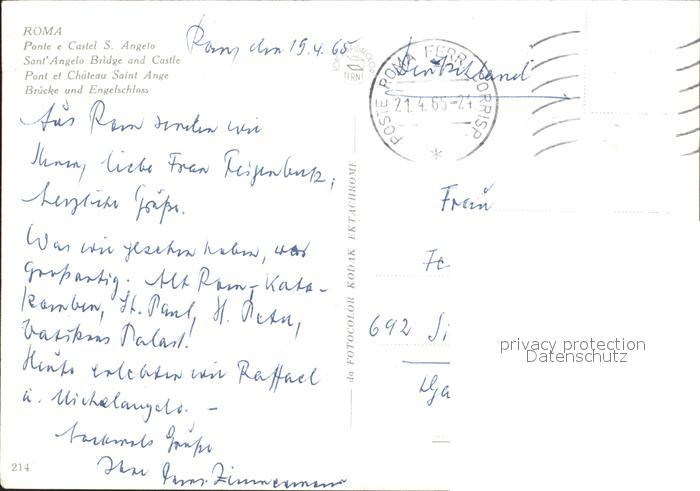 ROMA
Ponte e Castel S. Angelo
Sant'Angelo Bridge and Castle
Pont et Château Saint Ange
Brücke und Engelschloss
Rom, den 19.4.65
Deutschland
POSTE ROMA FERR. CORRISP.
21.4.65-21
Aus Rom senden wir
Ihnen, liebe Frau Feigenbutz,
herzliche Grüße.
Was wir gesehen haben, war
großartig. Alt Rom, Kata-
komben, St. Paul, St. Peter,
Vatikans Palast.
Heute erlebten wir Raffael
u. Michelangelo. –
Nochmals Grüße
Ihre Zimmermann
214
da FOTOCOLOR KODAK EKTACHROME
TERNI
Frau
Fe
692 Si
privacy protection
Datenschutz